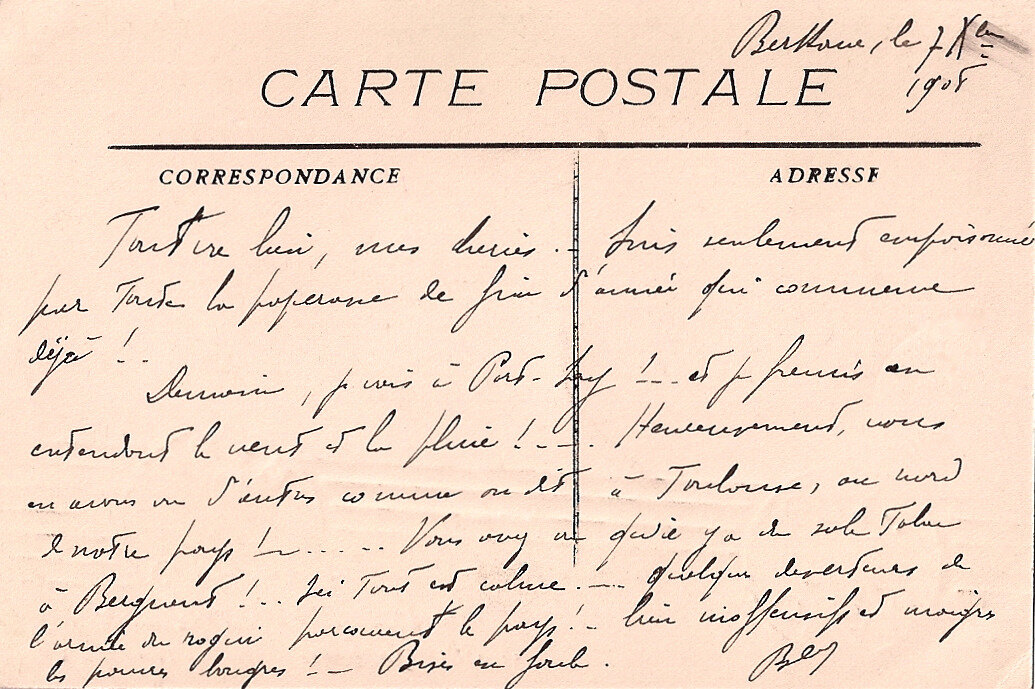 Berkane, le 7 Xbre
1908
CARTE POSTALE
CORRESPONDANCE
ADRESSE
Tout va bien, mes cheries. - Suis seulement empoisonné
par toute la paperasse de fin d'année qui commence
déjà !..
Demain, je vais à Port-Say !... et je fremis en
entendant le vent et la pluie !... Heureusement, nous
en avons vu d'autres comme on dit à Toulouse, au nord
de notre pays !... Vous avez vu qu'il y a du sale Tabac
à Berguent !.. Ici tout est calme. - quelques deserteurs de
l'armée du rogui parcourent le pays !- bien inoffensifs et maigres
les pauvres bougres ! - Bises en foule.